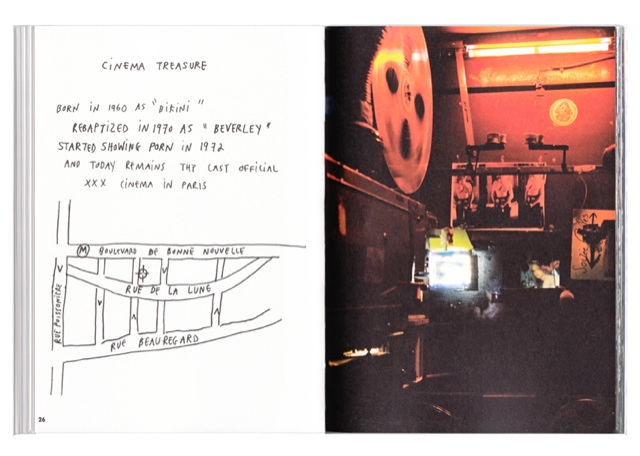 CINEMA TREASURE
BORN IN 1960 AS "BIKINI"
REBAPTIZED IN 1970 AS "BEVERLEY"
STARTED SHOWING PORN IN 1972
AND TODAY REMAINS THE LAST OFFICIAL
XXX CINEMA IN PARIS
M BOULEVARD DE BONNE NOUVELLE
RUE POISSONIÈRE
RUE DE LA LUNE
RUE BEAUREGARD
26